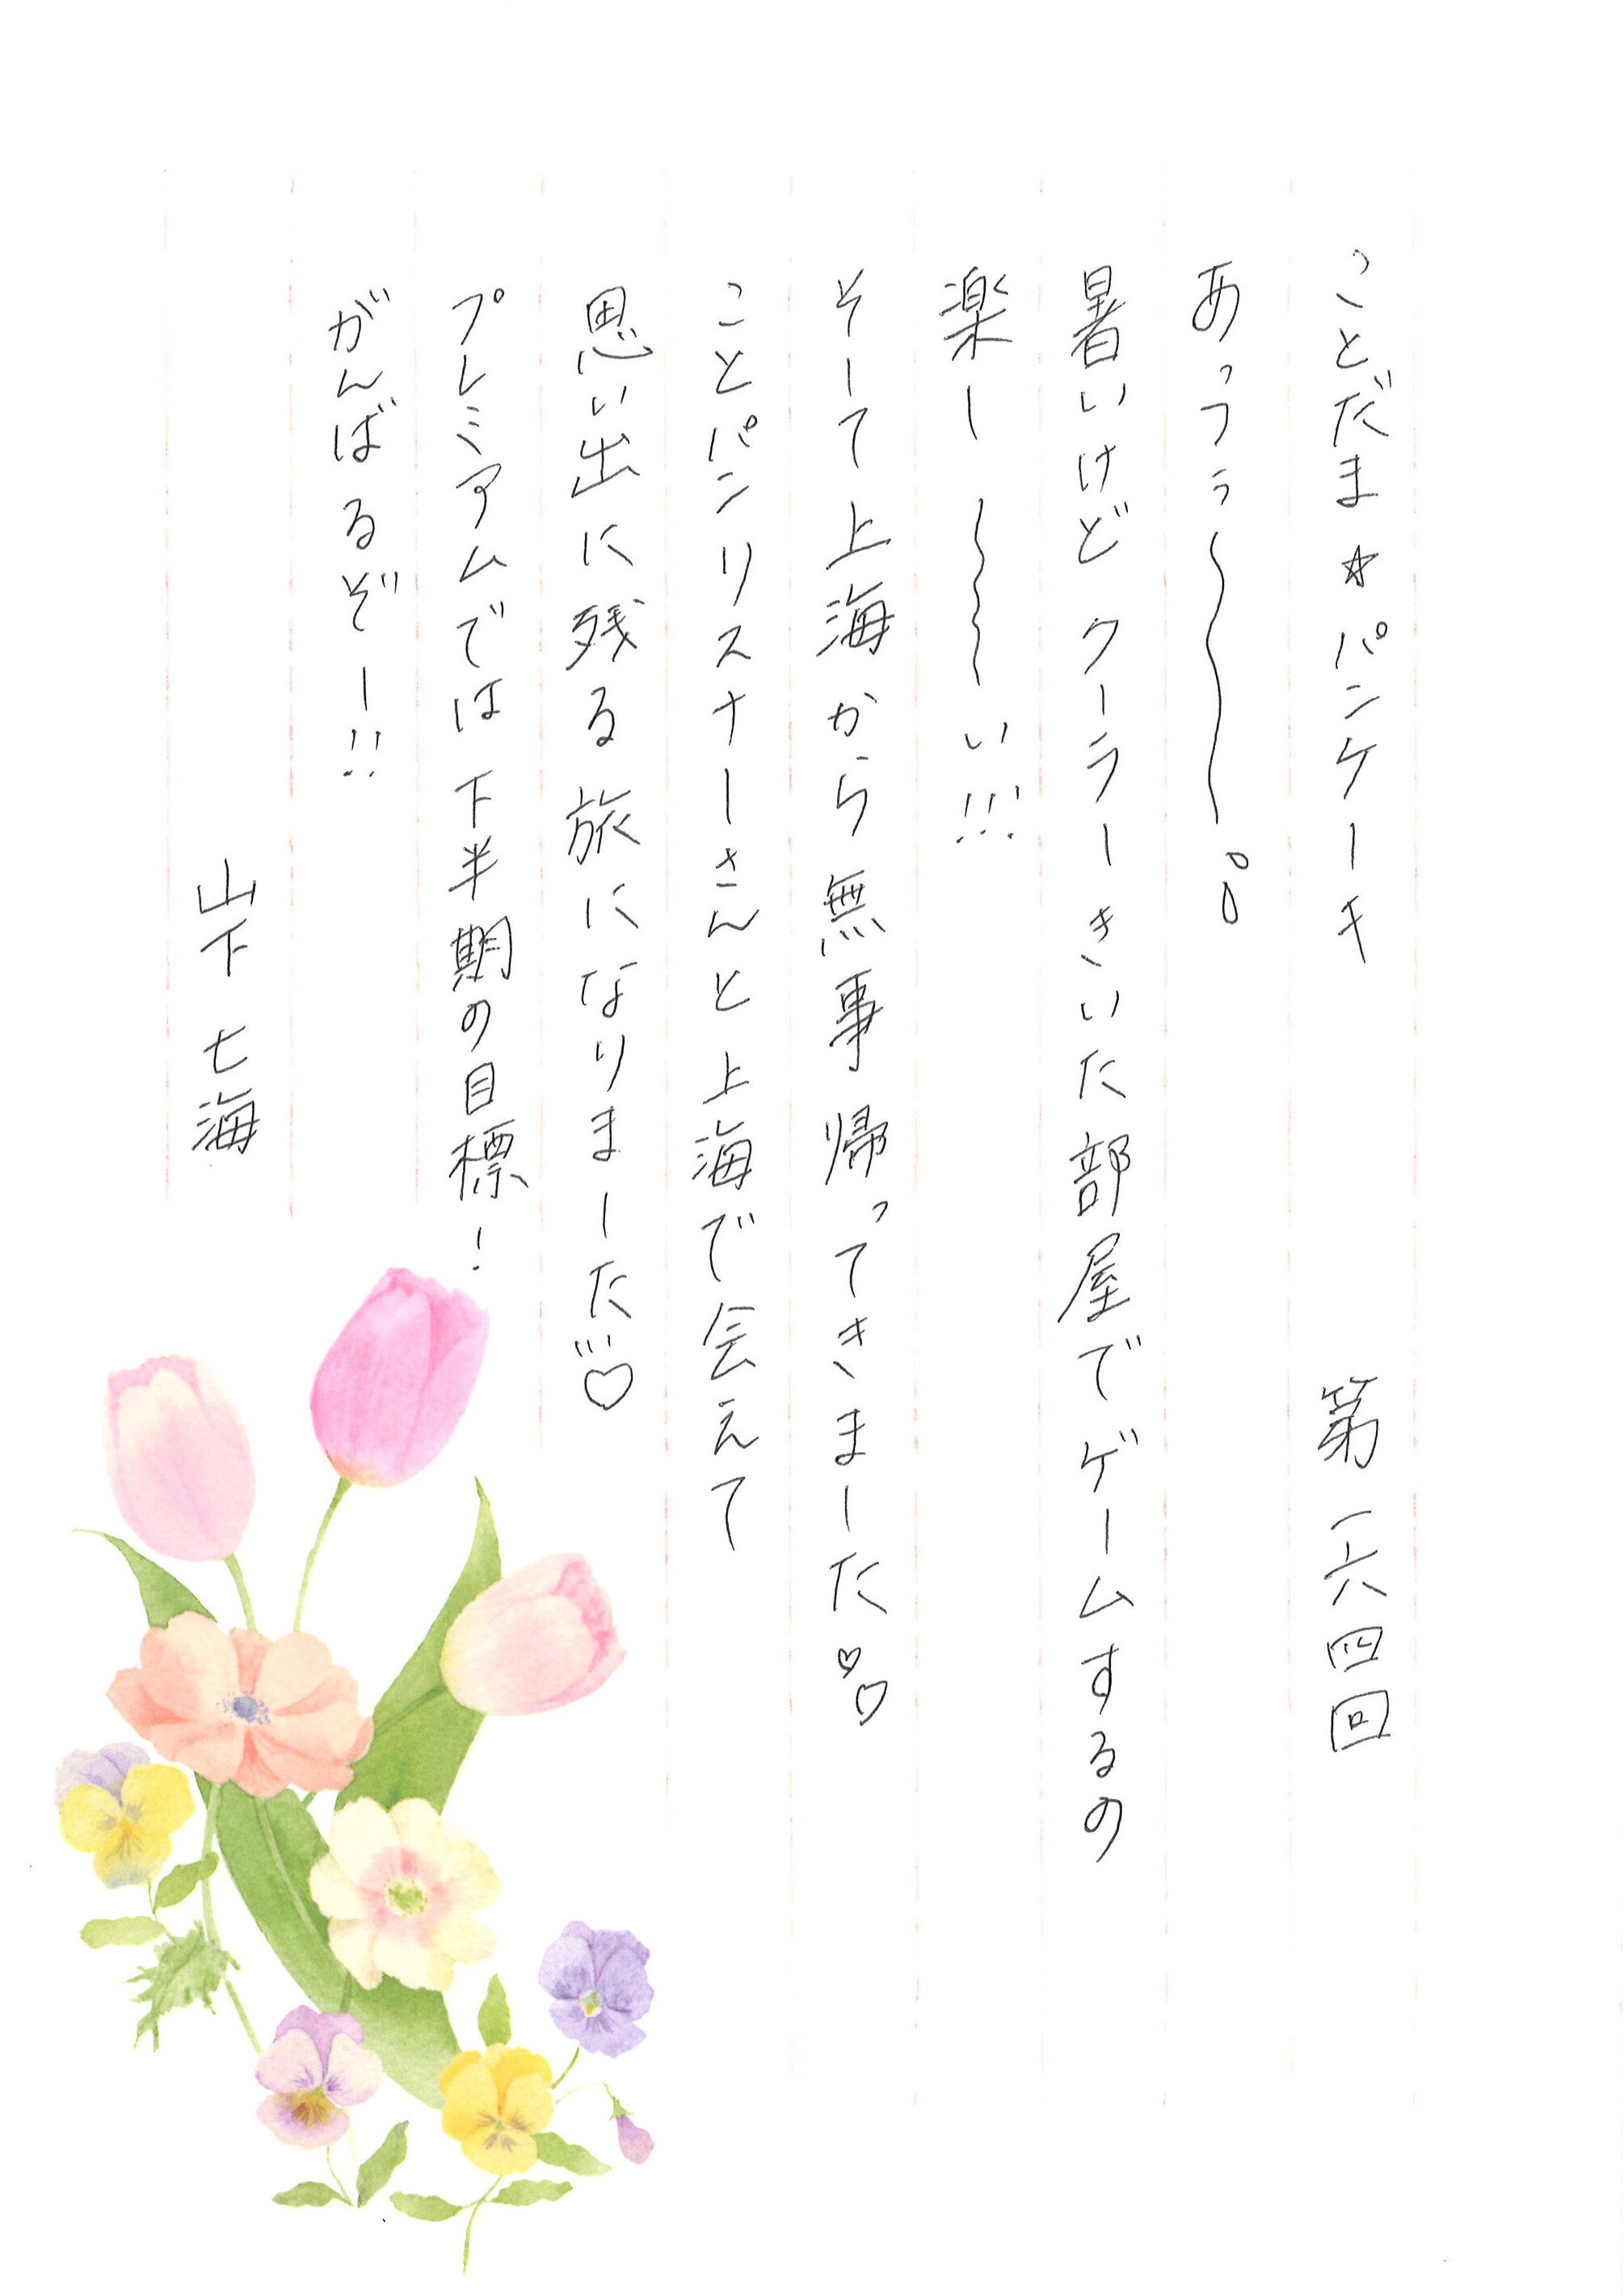 ことだま☆パンケーキ　第一六四回
あっつぅ〜〜。
暑いけどクーラーきいた部屋でゲームするの
楽し〜〜い!!!
そして上海から無事帰ってきました♡♡
ことパンリスナーさんと上海で会えて
思い出に残る旅になりました♡
プレミアムでは下半期の目標！
がんばるぞー!!
山下七海